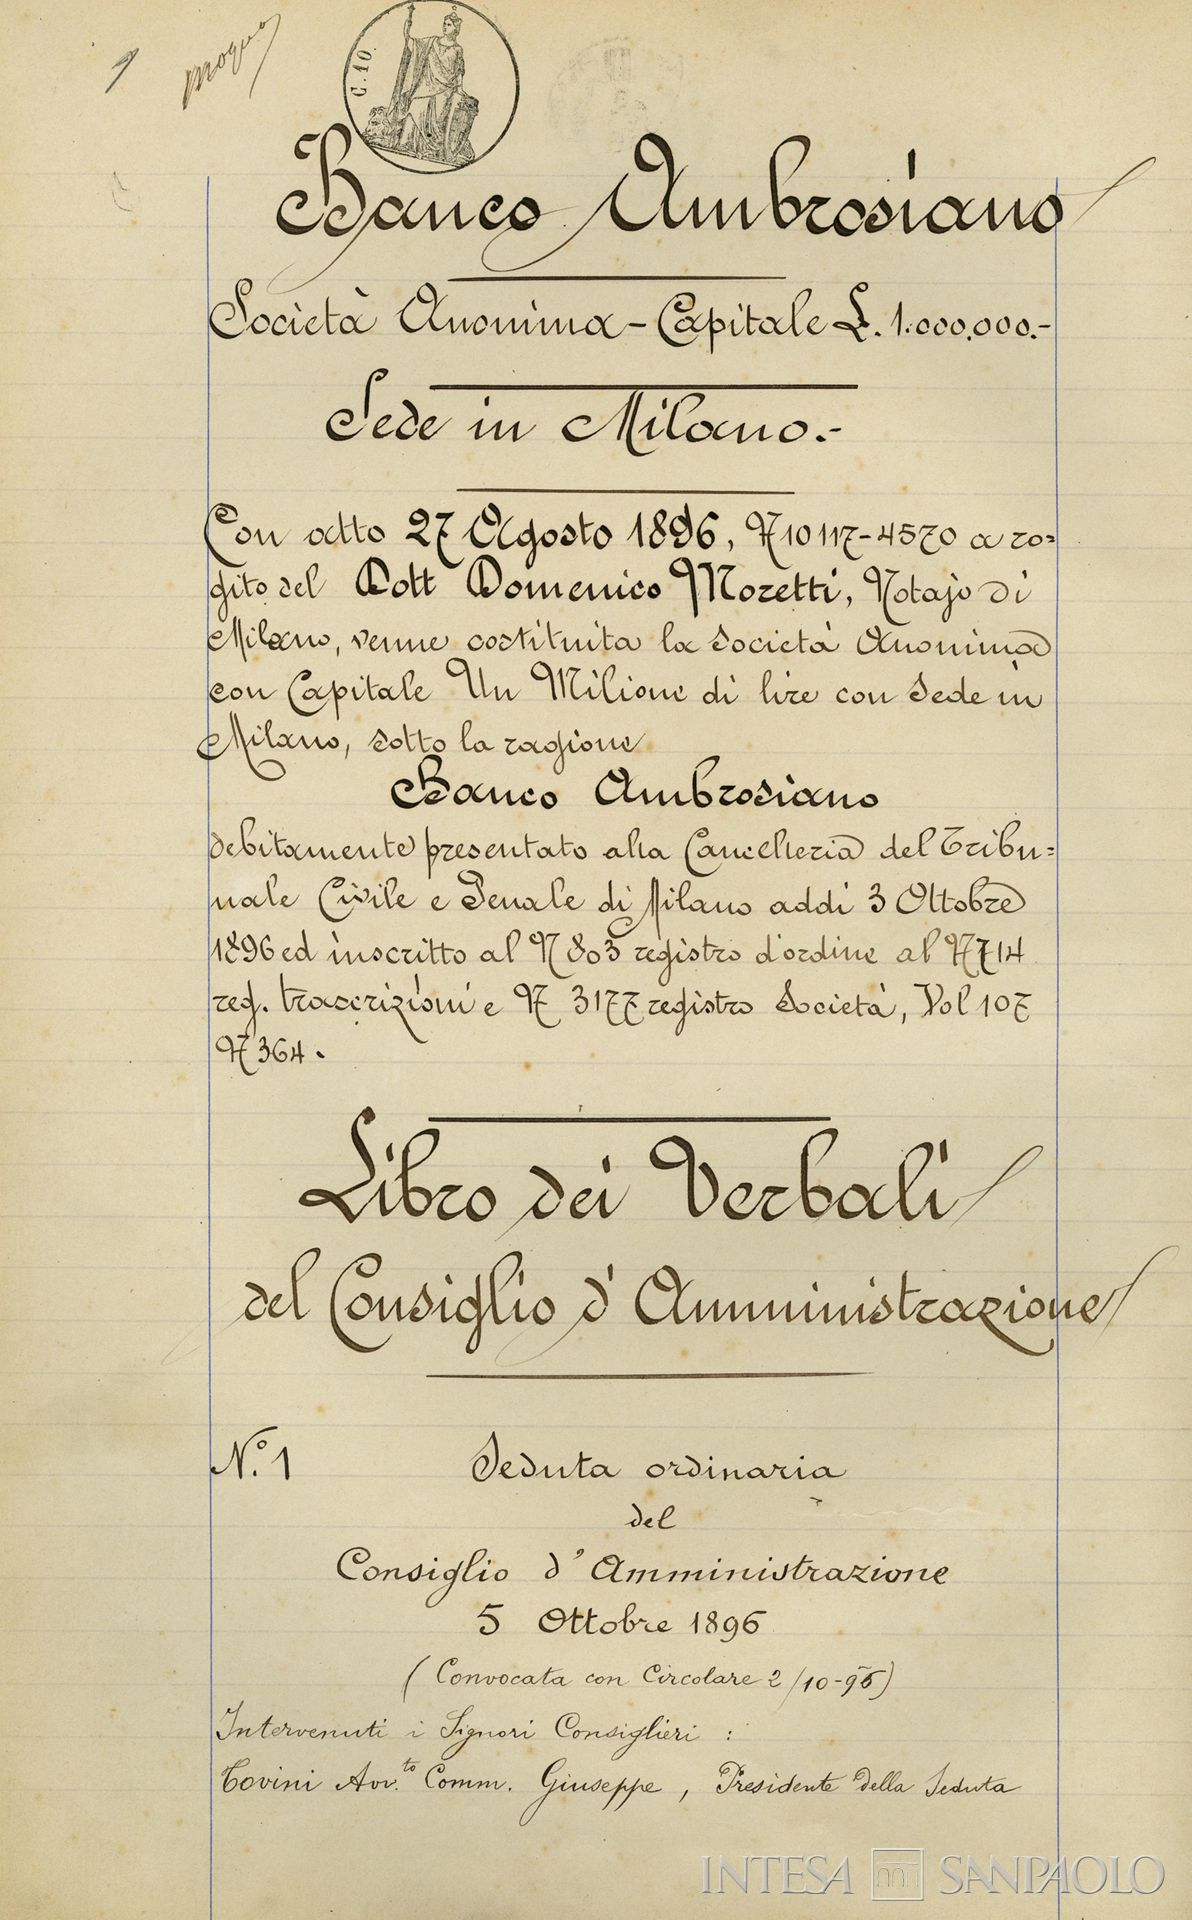 1
C. 10.
Banco Ambrosiano
Società Anonima - Capitale L. 1.000.000.-
Sede in Milano.-
Con atto 27 Agosto 1896, N 10117-4570 a ro=
gito del Dott Domenico Moretti, Notajo di
Milano, venne costituita la Società Anonima
con Capitale Un Milione di lire con Sede in
Milano, sotto la ragione
Banco Ambrosiano
debitamente presentato alla Cancelleria del Tribu=
nale Civile e Penale di Milano addi 3 Ottobre
1896 ed inscritto al N 803 registro d'ordine al N 714
reg. trascrizioni e N 3177 registro Società, Vol 107
N 364.
Libro dei Verbali
del Consiglio d'Amministrazione
N.º 1 Seduta ordinaria
del
Consiglio d'Amministrazione
5 Ottobre 1896
(Convocata con Circolare 2/10-96)
Intervenuti i Signori Consiglieri :
Tovini Avv.to Comm. Giuseppe, Presidente della Seduta
INTESA SANPAOLO